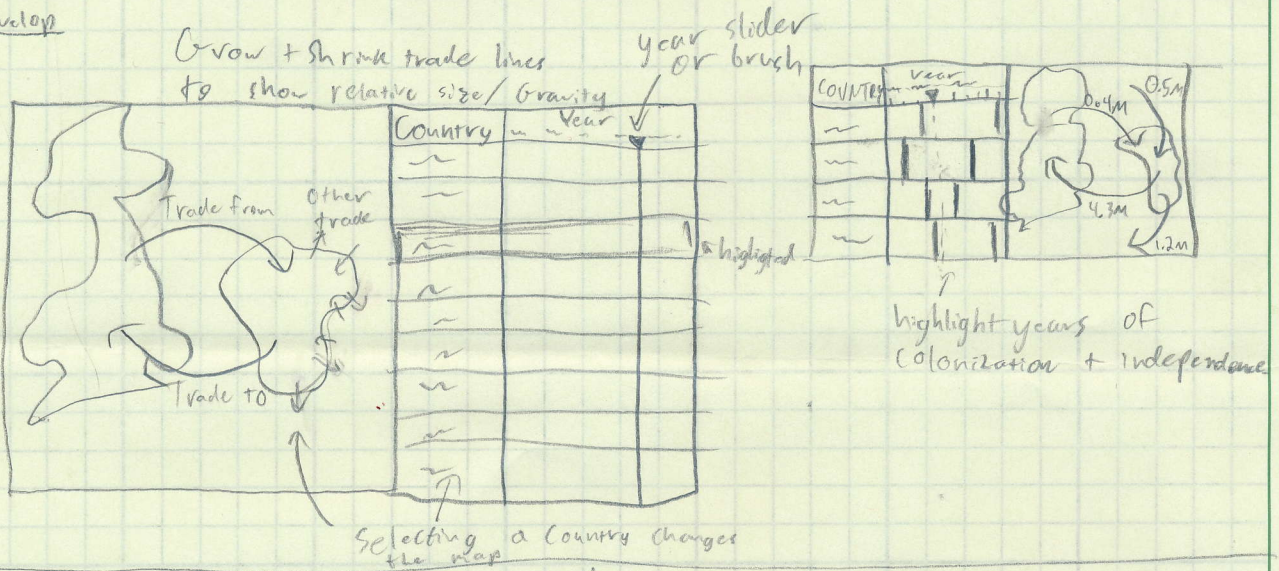 velop
Grow + Shrink trade lines
to show relative size/Gravity
year slider
or brush
Country
Year
Trade from
Other
trade
Trade to
higligted
Selecting a Country changes
the map
COUNTRY
year
0.4M
0.5M
4.3M
1.2M
highlight years of
Colonization + independence